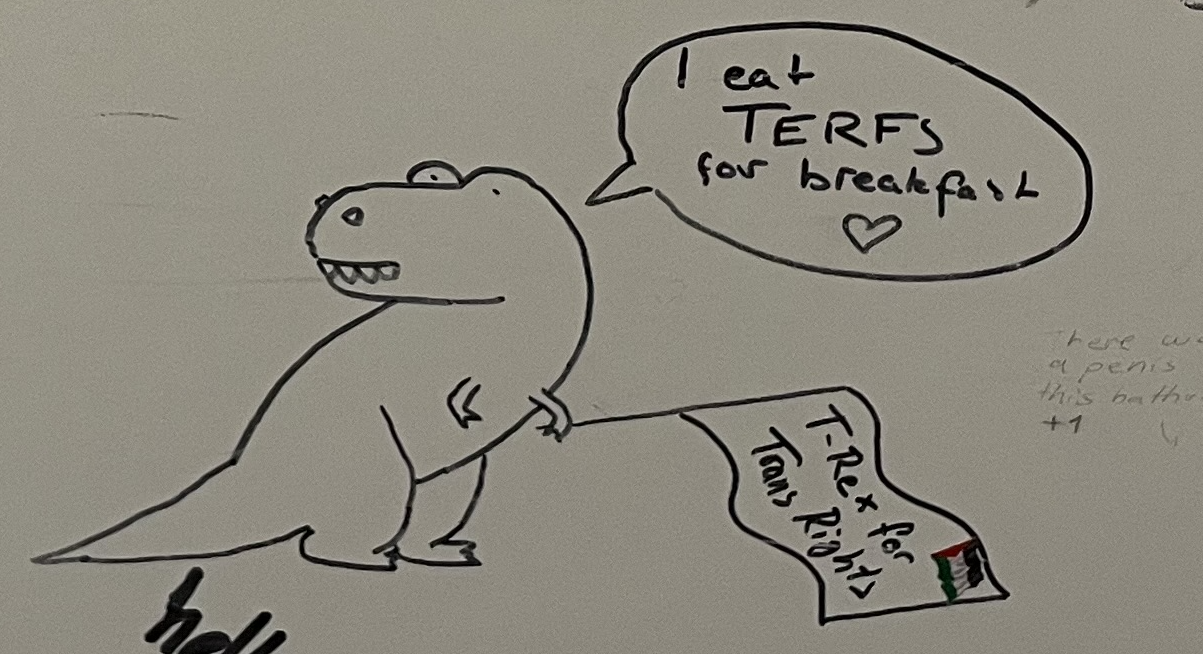 I eat
TERFS
for breakfast
T-Rex for
Trans Rights
There
a penis
this
+1